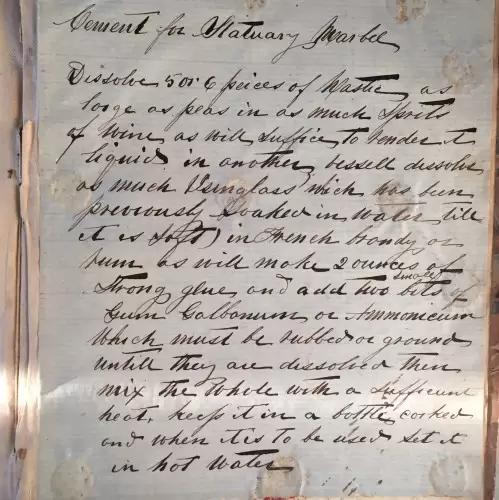 Cement for Statuary Marbel
Dissolve 5 or 6 peices of Mastic, as
large as peas in as much Sprits
of Wine, as will suffice to render it
liquid in another vessell dissolve
as much Isinglass wich has been
previously Soaked in water till
it is soft) in French brandy or
rum as will make 2 ounces of
strong glue, and add two small bits of
Gum Galbanum or Ammonicum
Which must be rubbed or ground
untill they are dissolved then
mix the Whole with a sufficient
heat, keep it in a bottle corked
and when it is to be used set it
in hot Water